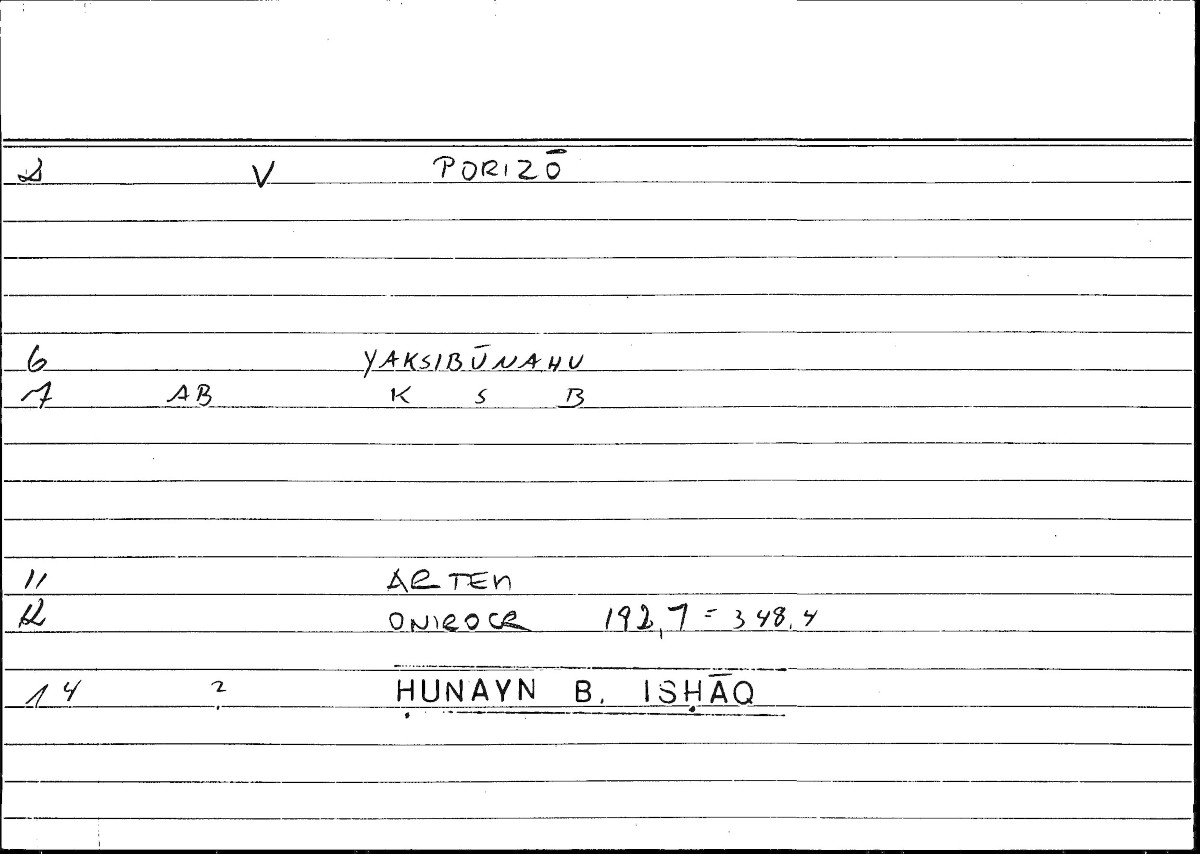 2 V PORIZŌ
6 YAKSIBŪNAHU
7 AB K S B
11 ARTEM
12 ONIROCR 192,7 = 348,4
14 ? ḤUNAYN B. ISḤĀQ